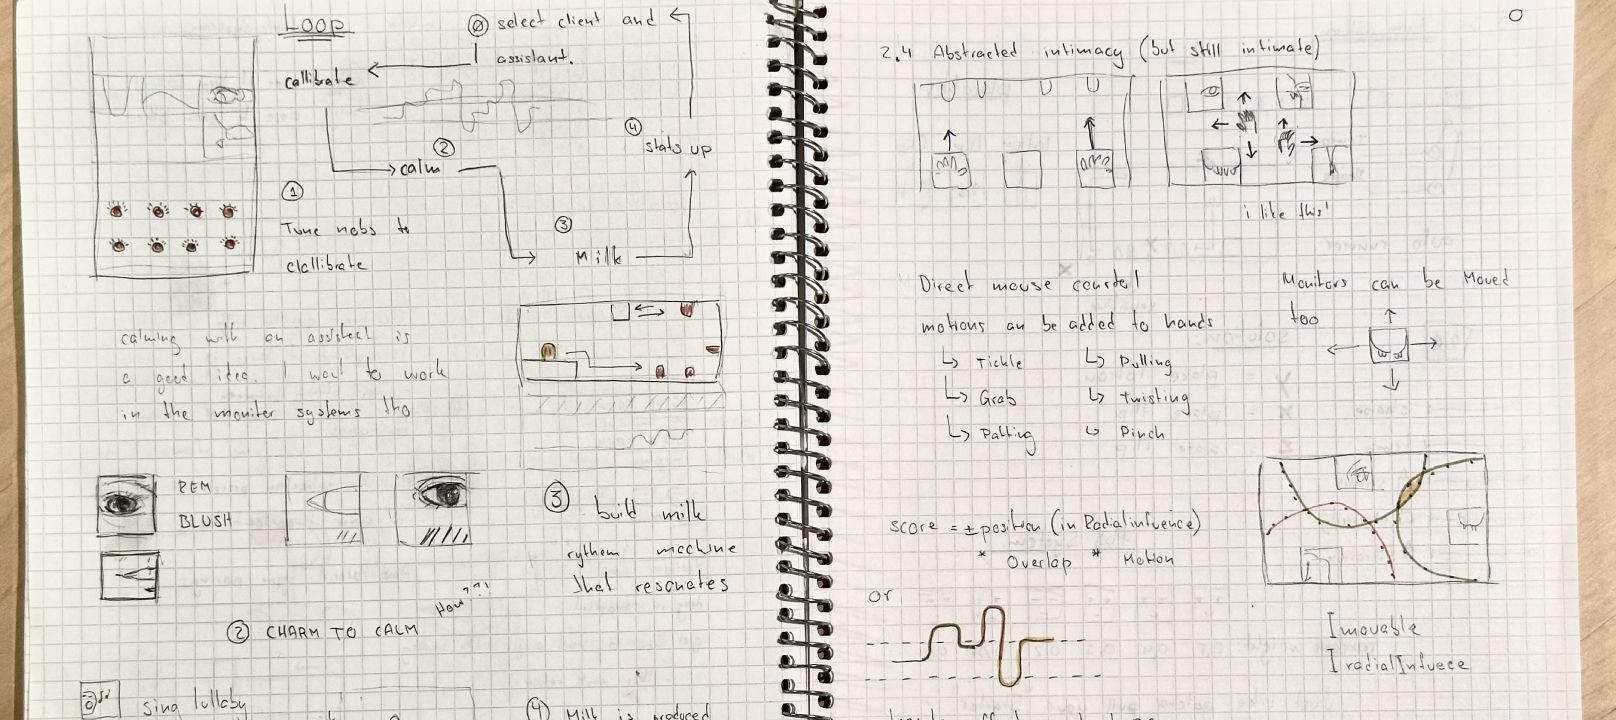 Loop
⓪ select client and
assistant.
callibrate
② calm
④ stats up
①
Tune nobs to
clallibrate
③ Milk
calming with an assistect is
a good idea. I want to work
in the moniter systems tho
REM
BLUSH
③ build milk
rythem machine
that resonates
How???
② CHARM TO CALM
sing lullaby
④ Milk is produced
2.4 Abstracted intimacy (but still intimate)
i like this!
Direct mouse
motions an be added to hands
↳ Tickle
↳ Pulling
↳ Grab
↳ twisting
↳ Patting
↳ Pinch
Monitors can be Moved
too
score = ± position (in Radial infuence)
* Overlap * Motion
or
I movable
I radialInfuece